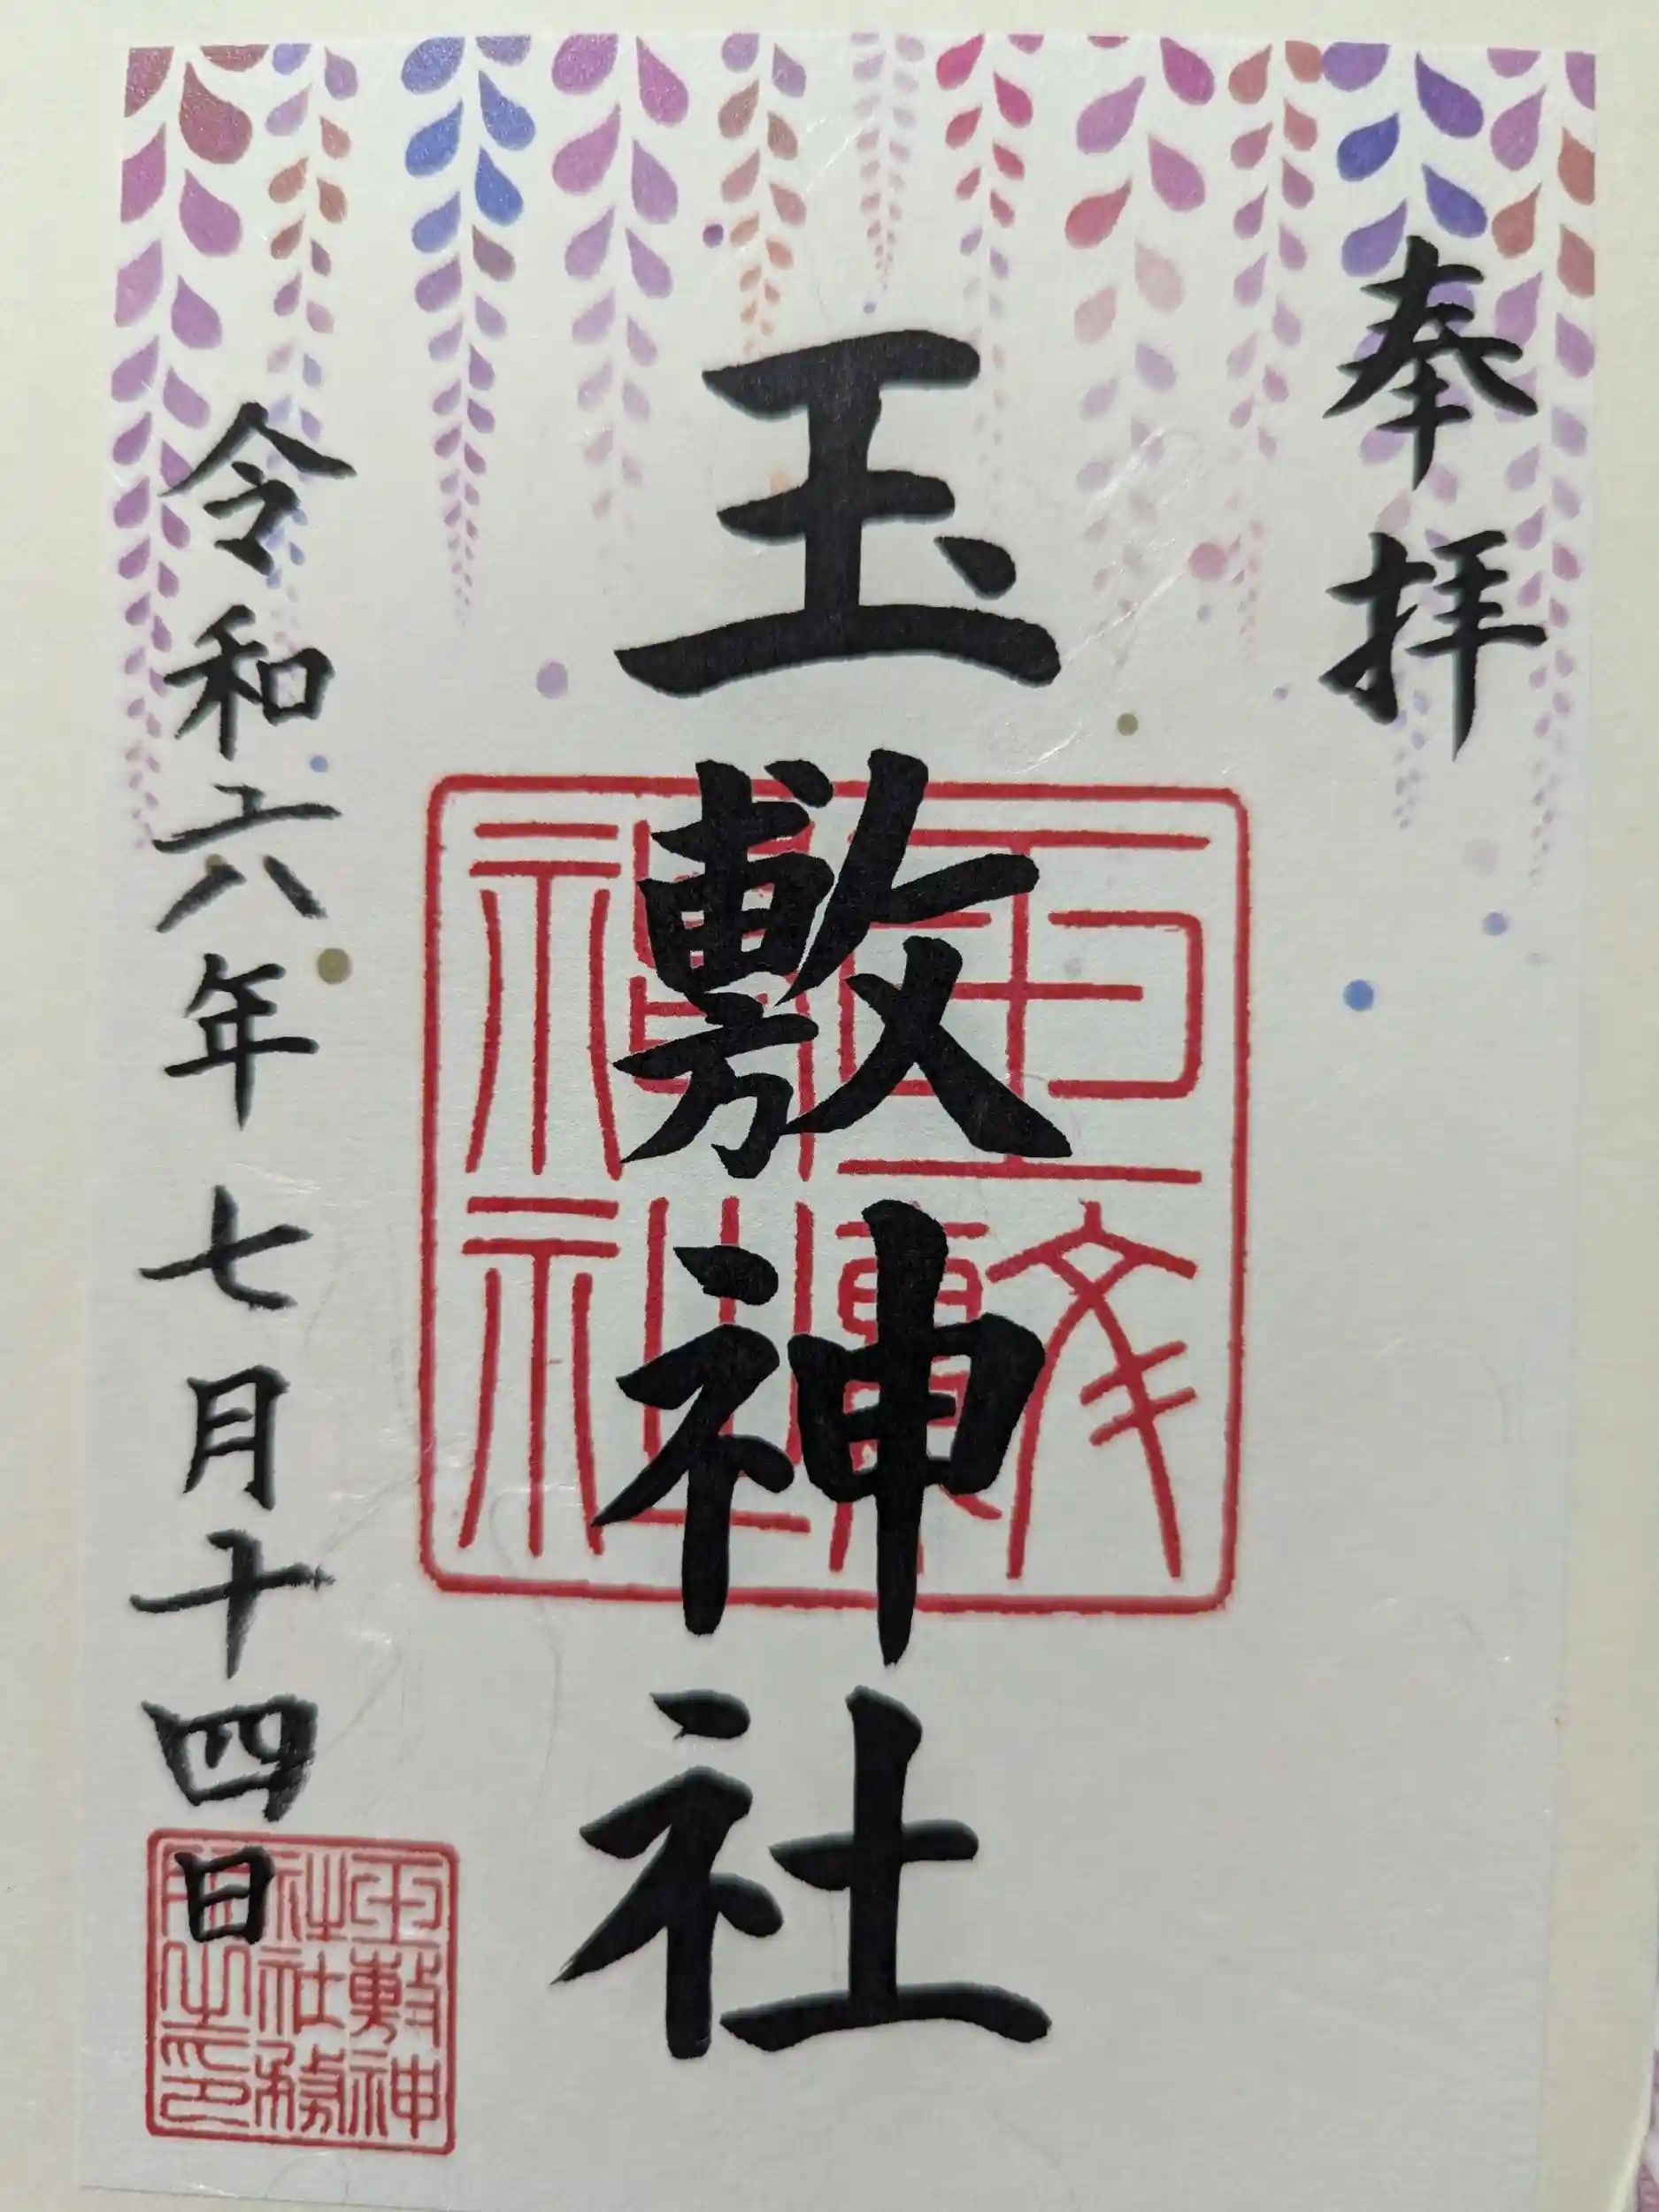 奉拝
玉敷神社
玉敷神社
令和六年七月十四日
玉敷神
社社務
所之印